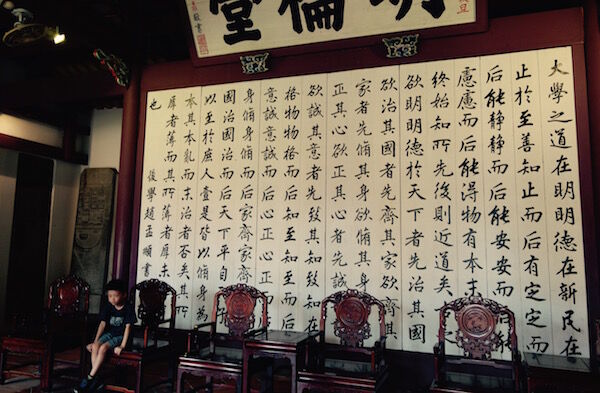 明倫堂
敬書
大學之道在明明德在新民在
止於至善知止而后有定定而
后能靜靜而后能安安而
慮慮而后能得物有本末
終始知所先後則近道矣
欲明明德於天下者先治其國
欲治其國者先齊其家欲
家者先脩其身欲脩其身
正其心欲正其心者先誠
欲誠其意者先致其知致知在
格物物格而后知至知至而后
意誠意誠而后心正心正而
身脩身脩而后家齊家
國治國治而后天下平自
以至於庶人壹是皆以脩身為
本其本亂而末治者否矣其
厚者薄而其所薄者厚未
也
後學趙孟頫書